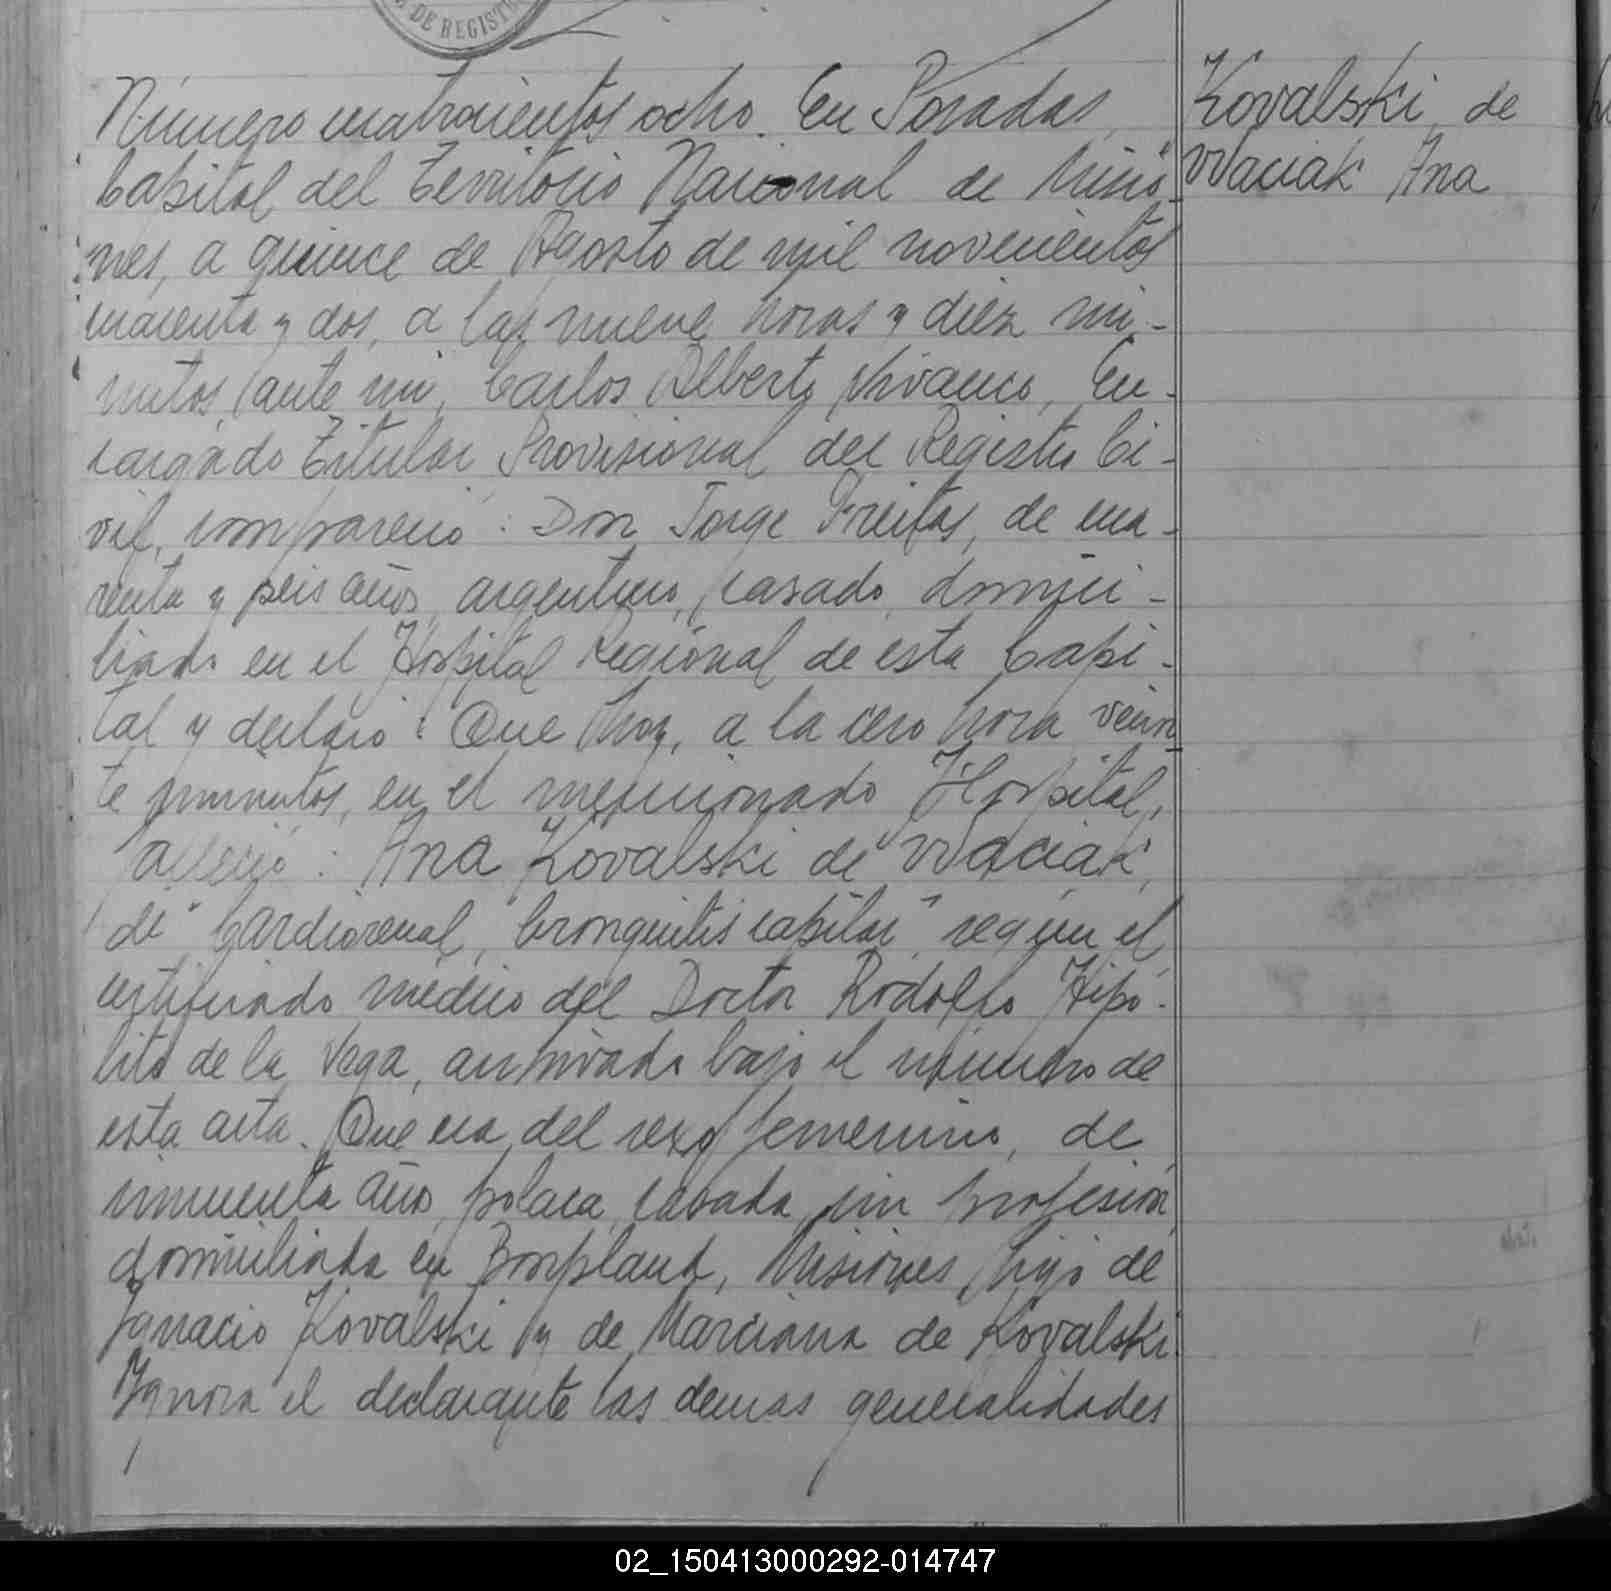 DE REGISTR
Número cuatrocientos ocho. En Posadas,
Capital del Territorio Nacional de Misio-
nes, a quince de Agosto de mil novecientos
cuarenta y dos, a las nueve horas y diez mi-
nutos, ante mi, Carlos Alberto Vivanco, En-
cargado Titular Provisional del Registro Ci-
vil, compareció: Don Jorge Freitas, de cua-
renta y seis años, argentino, casado, domici-
liado en el Hospital Regional de esta Capi-
tal y declaró: Que hoy, a la cero hora vein-
te minutos, en el mencionado Hospital,
falleció: Ana Kovalski de Waciak,
de "Cardiorenal, bronquitis capilar" según el
certificado médico del Doctor Rodolfo Hipó-
lito de la Vega, archivado bajo el número de
esta acta. Que era del sexo femenino, de
cincuenta años, polaca, casada, sin profesión,
domiciliada en Bonpland, Misiones, hija de
Ignacio Kovalski y de Marciana de Kovalski.
Ignora el declarante las demas generalidades
Kovalski de
Waciak Ana
02_150413000292-014747